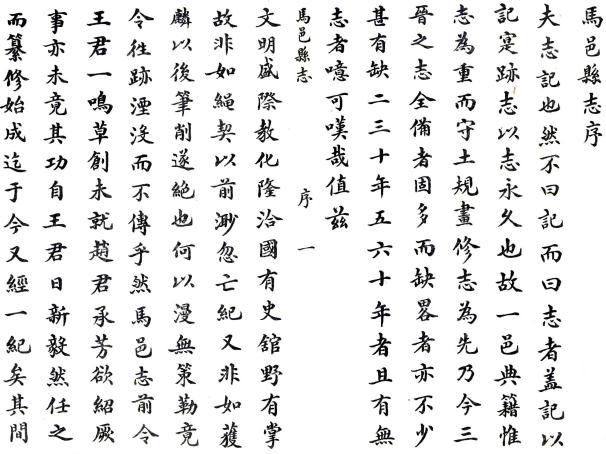 馬邑縣志序
夫志記也然不曰記而曰志者蓋記以
記寔跡志以志永久也故一邑典籍惟
志為重而守土規畫修志為先乃今三
晉之志全備者固多而缺畧者亦不少
甚有缺二三十年五六十年者且有無
志者噫可嘆哉值兹
馬邑縣志
序
一
文明盛際教化隆洽國有史舘野有掌
故非如繩契以前渺忽亡紀又非如獲
麟以後筆削遂絶也何以漫無策勒竟
令往跡湮沒而不傳乎然馬邑志前令
王君一鳴草創未就趙君承芳欲紹厥
事亦未竟其功自王君日新毅然任之
而纂修始成迄于今又經一紀矣其間